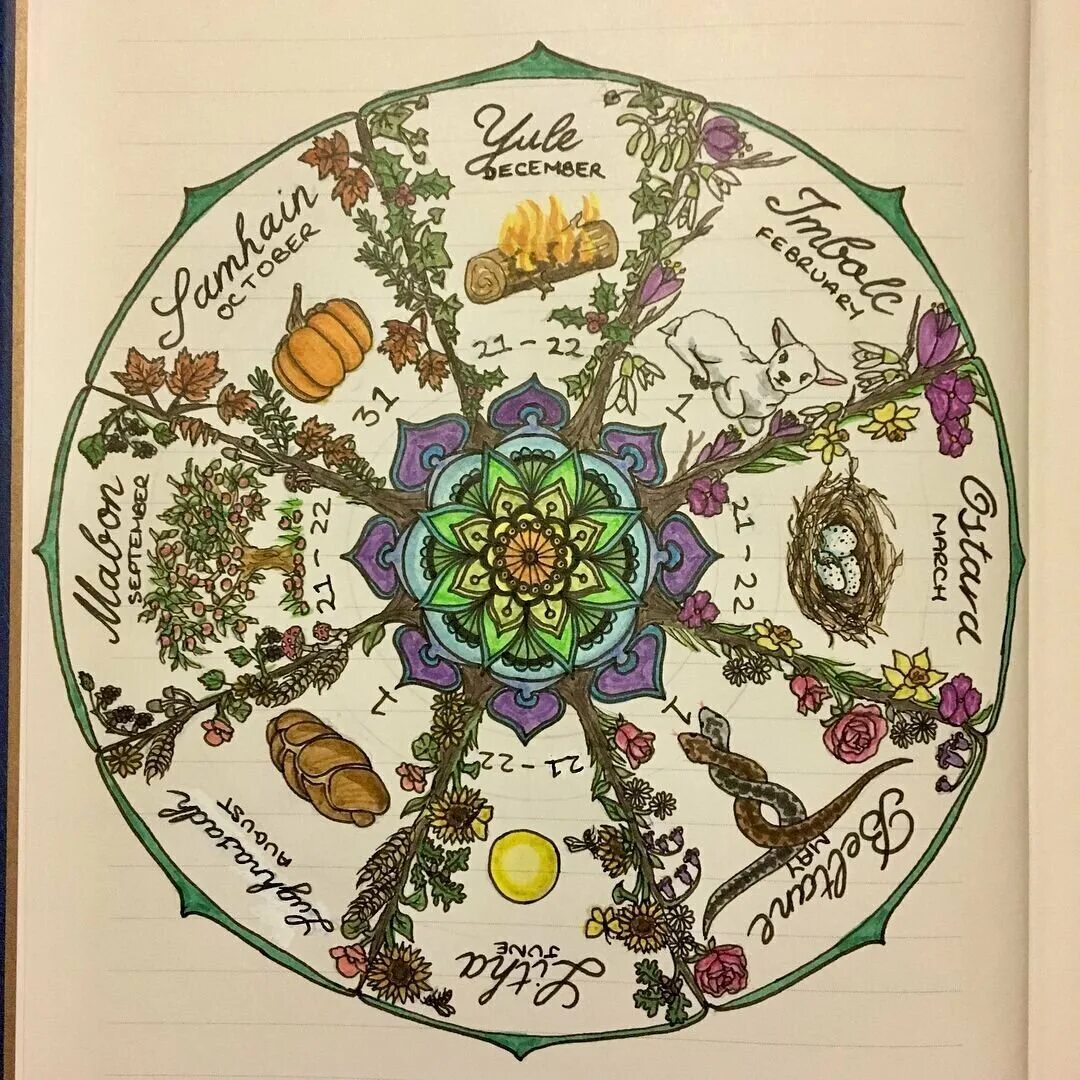 Yule
DECEMBER
21-22
Imbolc
FEBRUARY
1
Ostara
MARCH
21-22
Beltane
MAY
1
Litha
JUNE
21-22
Lughnasadh
AUGUST
1
Mabon
SEPTEMBER
21-22
Samhain
OCTOBER
31